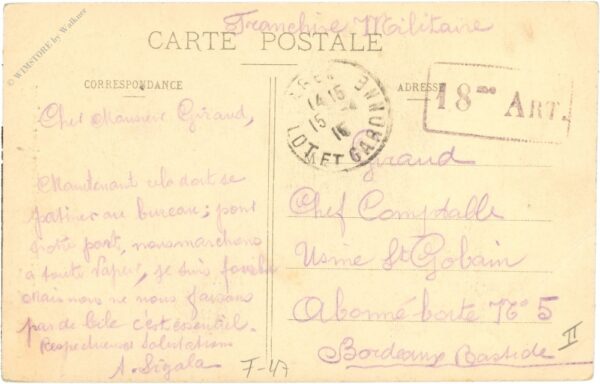 © WIMSTORE by Walkner
Franchise Militaire
CARTE POSTALE
CORRESPONDANCE
ADRESSE
AGEN
14 15
15
15
LOT ET GARONNE
18me ART.
Cher Monsieur Giraud,
Maintenant cela doit se
au bureau; pour
notre part, nous marchons
à toute vapeur, je suis
Mais nous ne nous faisons
pas de bile c'est essentiel.
Respectueuses Salutations
A. Sigala
Giraud
Chef Comptable
Usine St Gobain
Abonné boite No 5
Bordeaux Bastide
II
F-47